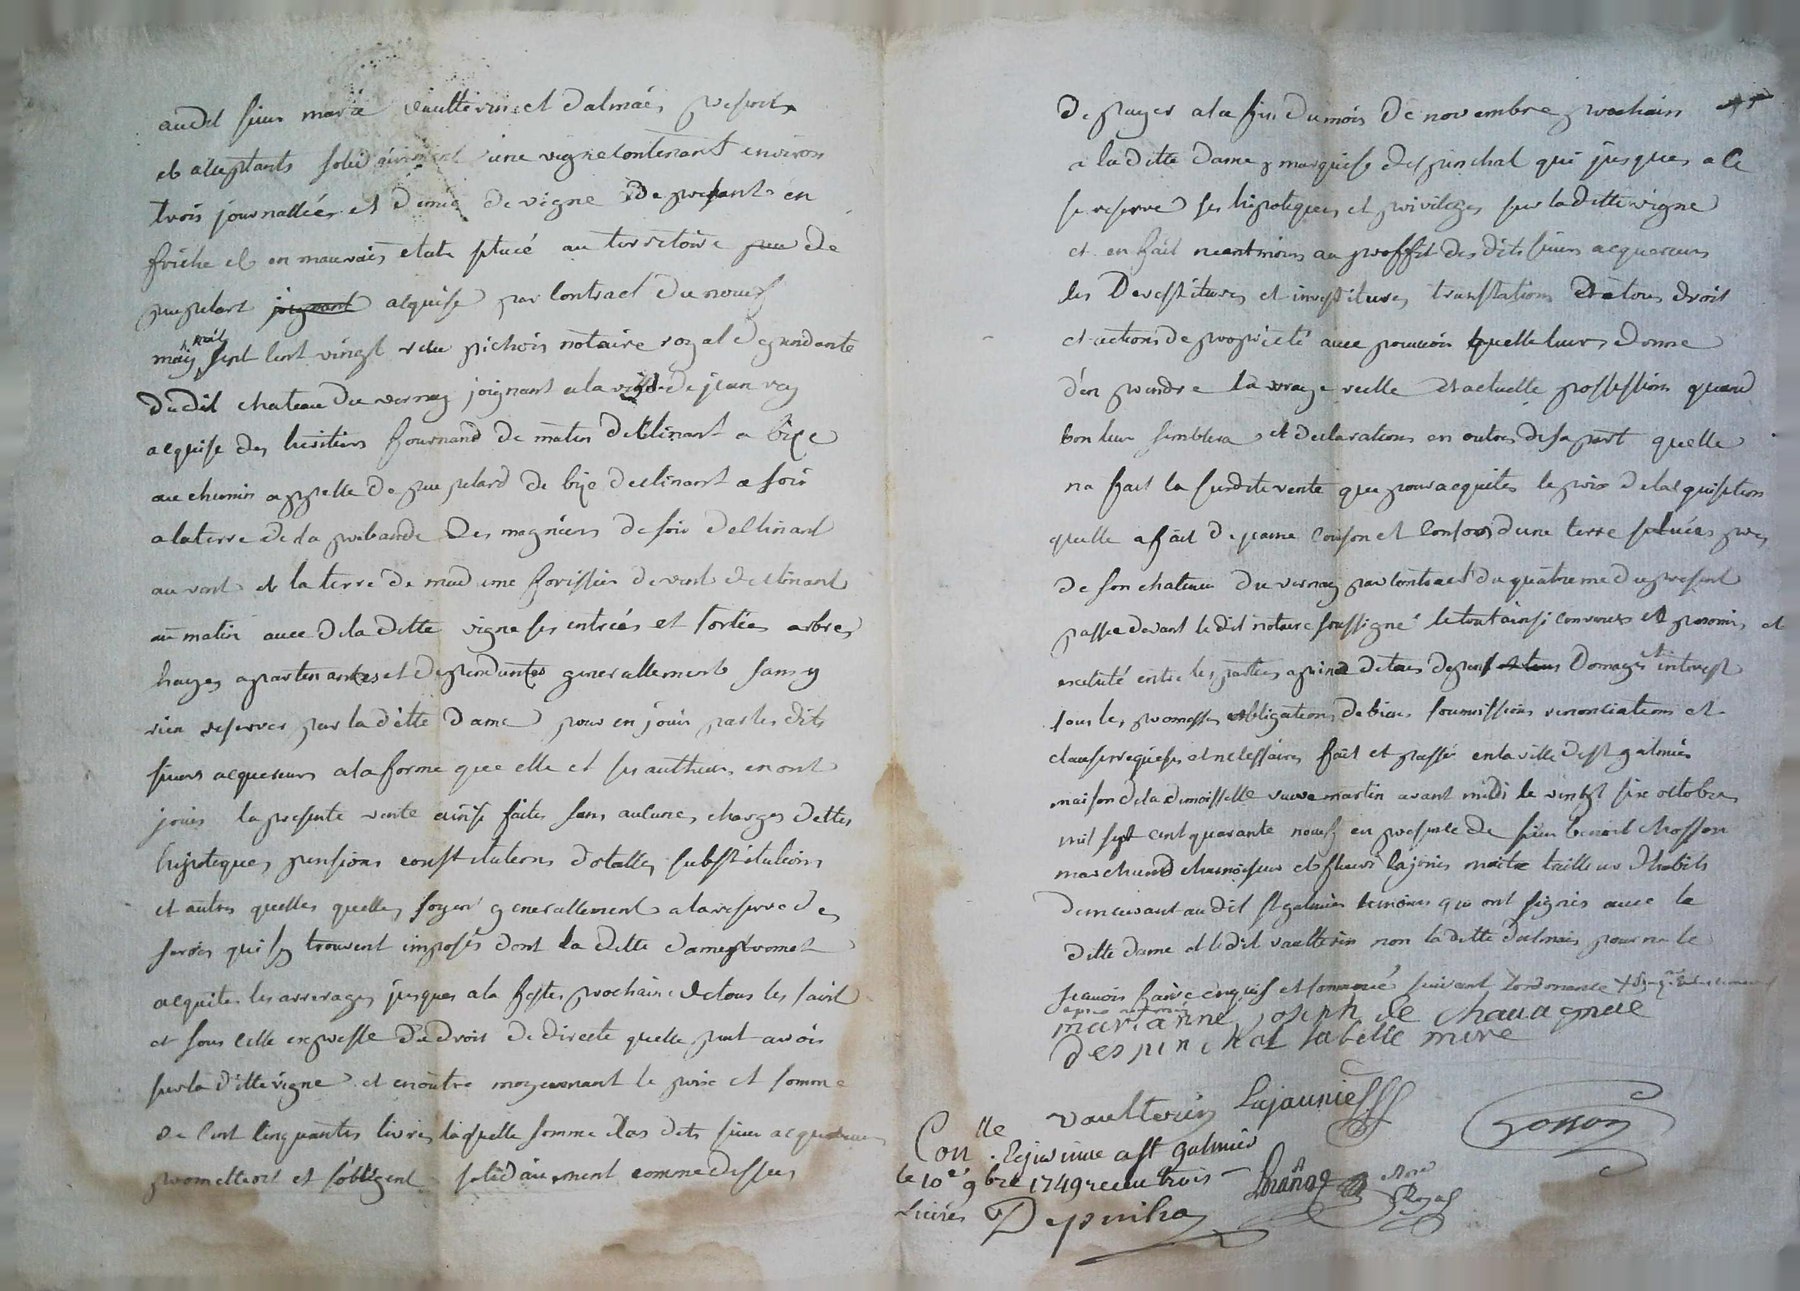 audit sieur marie vaulterin et dalmais, presents
et acceptants solidairement une vigne contenant environ
trois journallées et demie de vigne de present en
friche et en mauvais etat situé au territoire de
acquise par contract du neuf
may mil sept cent vingt reçu pichois notaire royal dependante
dudit chateau du vernay joignant a la vigne de jean rey
acquise des heritiers fournand de matin declinant a bize
au chemin appellé de de bize declinant a soir
a la terre de la prebande des magniens de soir declinant
au vent et la terre de madame forissier de vent declinant
au matin avec de la ditte vigne ses entrées et sorties arbres
hayes apartenantes et dependantes generallement sans y
rien reserver par la ditte dame pour en jouir par les dits
sieurs acquereurs a la forme que elle et ses autheurs en ont
joui la presente vente ainsi faite sans aucunes charges dettes
hipoteques, pensions constitutions dotalles, substitutions
et autres quelles quelles soyent generallement a la reserve des
servis qui se trouvent imposés dont la ditte dame promet
acquiter les arrerages jusques a la feste prochaine de tous les saints
et sous celle expresse du droit de directe quelle peut avoir
sur la ditte vigne et en outre moyennant le prix et somme
de cent cinquante livres laquelle somme les dits sieurs acquereurs
promettent et s'obligent solidairement comme dessus
de payer a la fin du mois de novembre prochain
a la ditte dame marquise despinchal qui jusques a ce
se reserve ses hipoteques et privileges sur la ditte vigne
et en fait neantmoins au proffit des dits sieurs acquereurs
les devestitures et investitures, translations de tous droit
et actions de proprieté avec pouvoir quelle leurs donne
d'en prendre la vraye reelle et actuelle possession quand
bon leur semblera et declarations en outre de sa part quelle
na fait la susdite vente que pour acquiter le prix de lacquisition
quelle a fait de jeanne coison et consors dune terre située pres
de son chateau du vernay par contract du quatrieme du present
passé devant le dit notaire soussigné le tout ainsi convenu et promis et
executé entre les parties a peine de tous depens domages et interest
sous les promesses obligations de biens soumissions renonciations et
clauses requises et necessaires fait et passé en la ville de st galmier
maison de la demoiselle veuve martin avant midi le vingt six octobre
mil sept cent quarante neuf en presence de sieur benoit chosson
marchand chamoiseur et fleuri lajonie maitre tailleur d'habits
demeurant au dit st galmier temoins qui ont signés avec la
ditte dame et le dit vaulterin non la ditte dalmais pour ne le
sçavoir faire enquis et sommé suivant l'ordonnance
marianne joseph de chavagnac
despinchal la belle mere
vaulterin Lajaunie
Con.lle Reginime a st galmier
le 10e 9bre 1749 receu trois
Livres Despinha
Royal